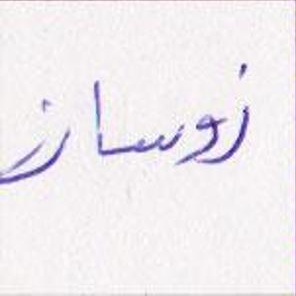 زوساز